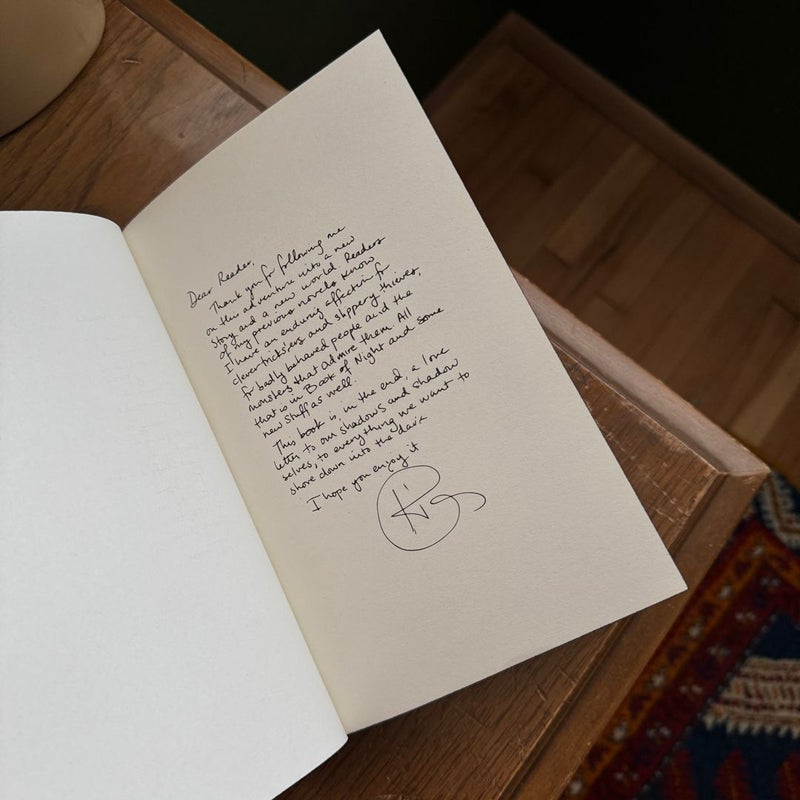 Dear Reader,
Thank you for following me
on this adventure into a new
story and a new world. Readers
of my previous novels know
I have an enduring affection for
clever tricksters and slippery thieves,
for badly behaved people and the
monsters that admire them. All
that is in Book of Night and some
new stuff as well.
This book is, in the end, a love
letter to our shadows and shadow
selves, to everything we want to
shove down into the dark
I hope you enjoy it